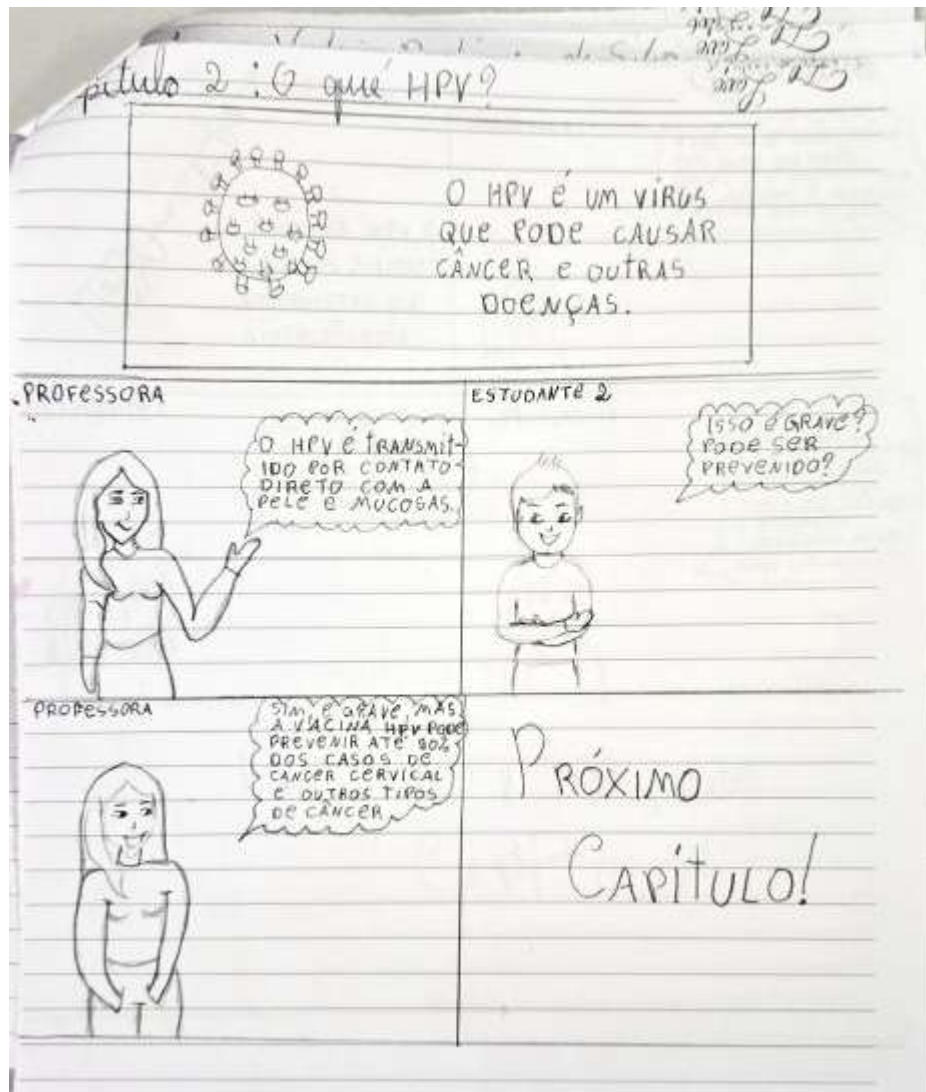 pítulo 2: O quê HPV?
O HPV É UM VÍRUS
QUE PODE CAUSAR
CÂNCER E OUTRAS
DOENÇAS.
PROFESSORA
O HPV É TRANSMIT-
IDO POR CONTATO
DIRETO COM A
PELE E MUCOSAS.
ESTUDANTE 2
ISSO É GRAVE?
PODE SER
PREVENIDO?
PROFESSORA
SIM É GRAVE, MAS
A VACINA HPV PODE
PREVENIR ATÉ 90%
DOS CASOS DE
CANCER CERVICAL
E OUTROS TIPOS
DE CÂNCER
PRÓXIMO
CAPÍTULO!